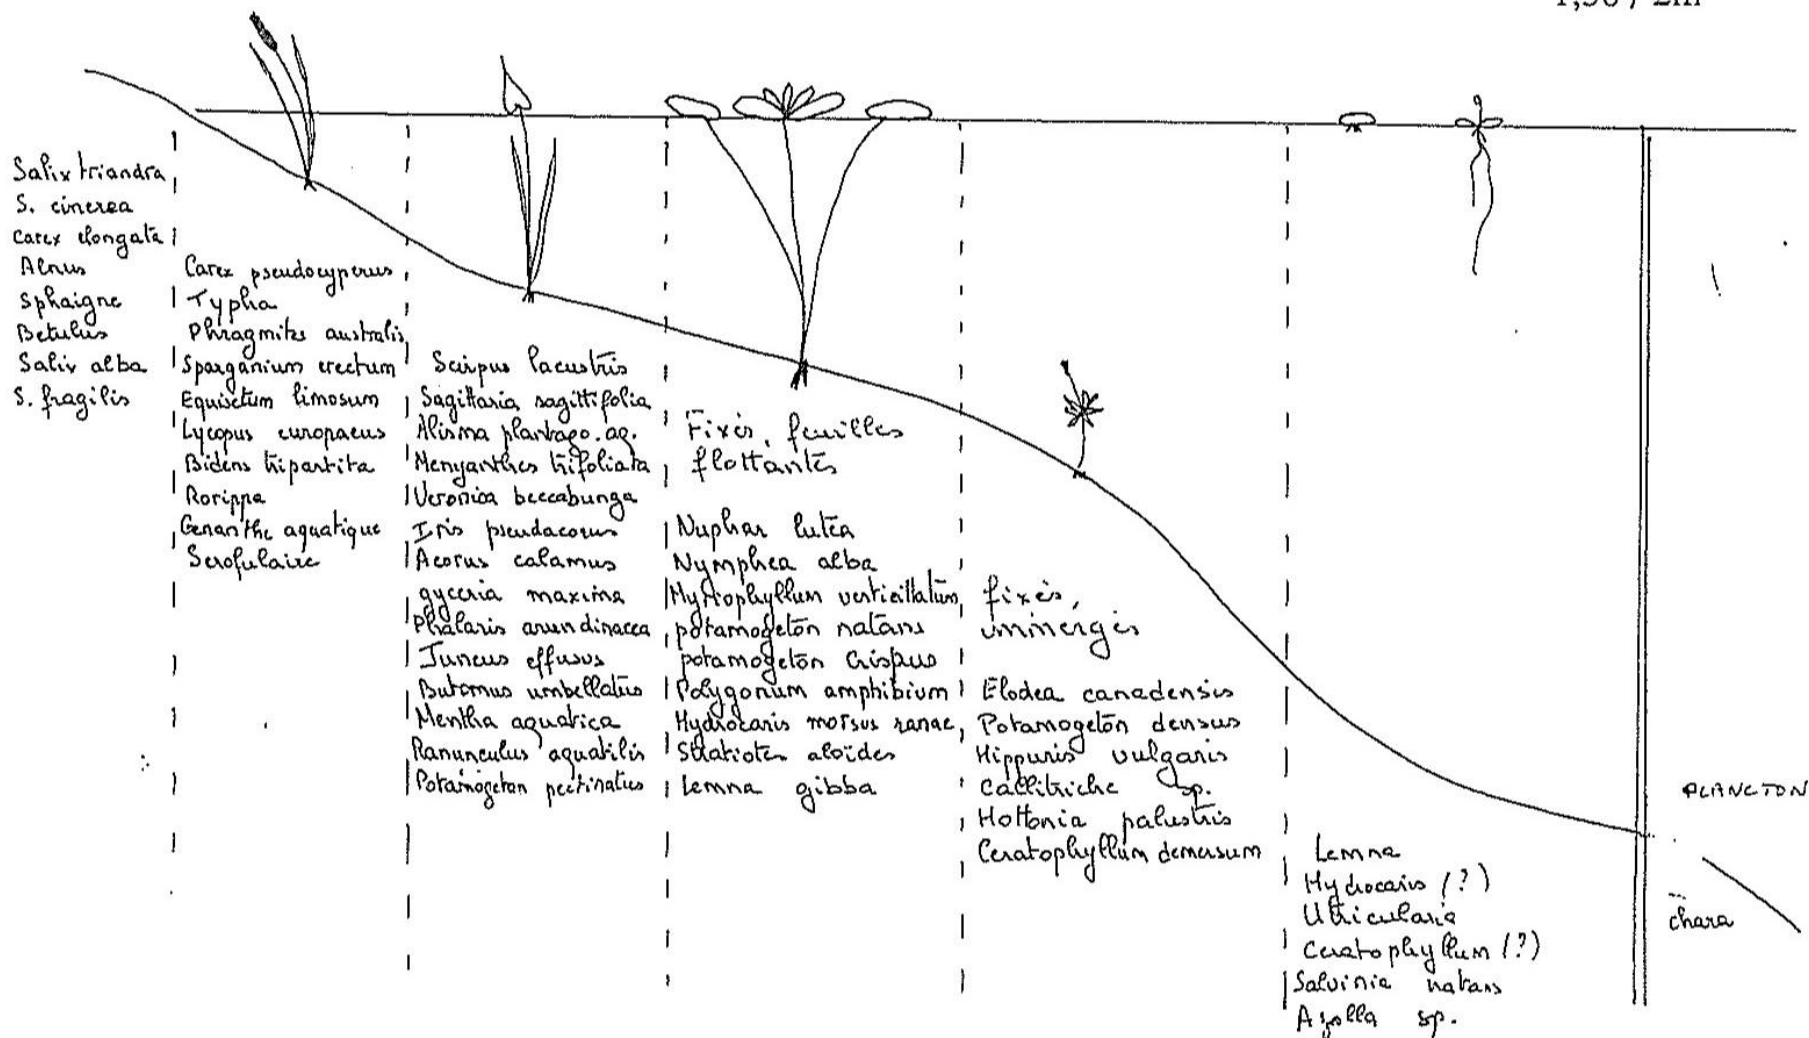 1,50 / 2m
Salix triandra
S. cinerea
Carex elongata
Alnus
Sphaigne
Betulus
Salix alba
S. fragilis
Carex pseudocyperus
Typha
Phragmites australis
Sparganium erectum
Equisetum limosum
Lycopus europaeus
Bidens tripartita
Rorippa
Oenanthe aquatique
Scrofulaire
Scirpus lacustris
Sagittaria sagittifolia
Alisma plantago.aq.
Menyanthes trifoliata
Veronica beccabunga
Iris pseudacorus
Acorus calamus
gyceria maxima
Phalaris arundinacea
Juncus effusus
Butomus umbellatus
Mentha aquatica
Ranunculus aquatilis
Potamogeton pectinatus
Fixés, feuilles
flottantes
Nuphar lutea
Nymphea alba
Myriophyllum verticillatum
potamogeton natans
potamogeton crispus
Polygonum amphibium
Hydrocaris morsus ranae
Stratiotes aloïdes
Lemna gibba
fixés,
immergés
Elodea canadensis
Potamogeton densus
Hippuris vulgaris
Callitriche sp.
Hottonia palustris
Ceratophyllum demersum
Lemna
Hydrocaris (?)
Utricularia
Ceratophyllum (?)
Salvinia natans
Azolla sp.
PLANCTON
chara